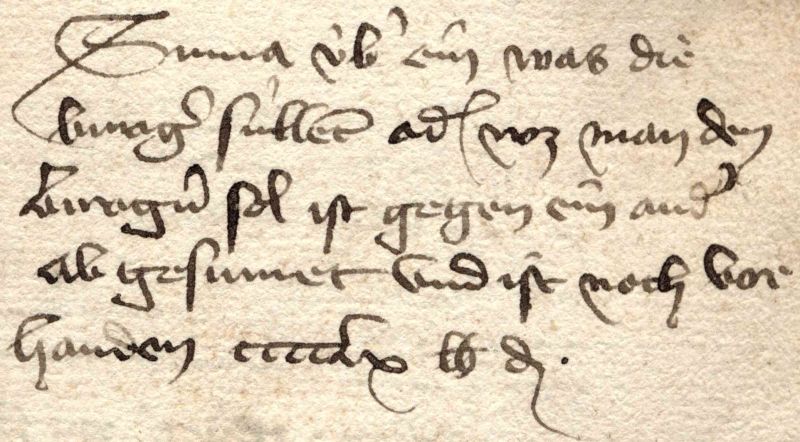 Suma v̈b' ein was die
burg' süllent od' wz man den
burgn̄ sol ist gegen ein and'
ab gesumet vnd ist noch vor
handen ccccclx lb d.